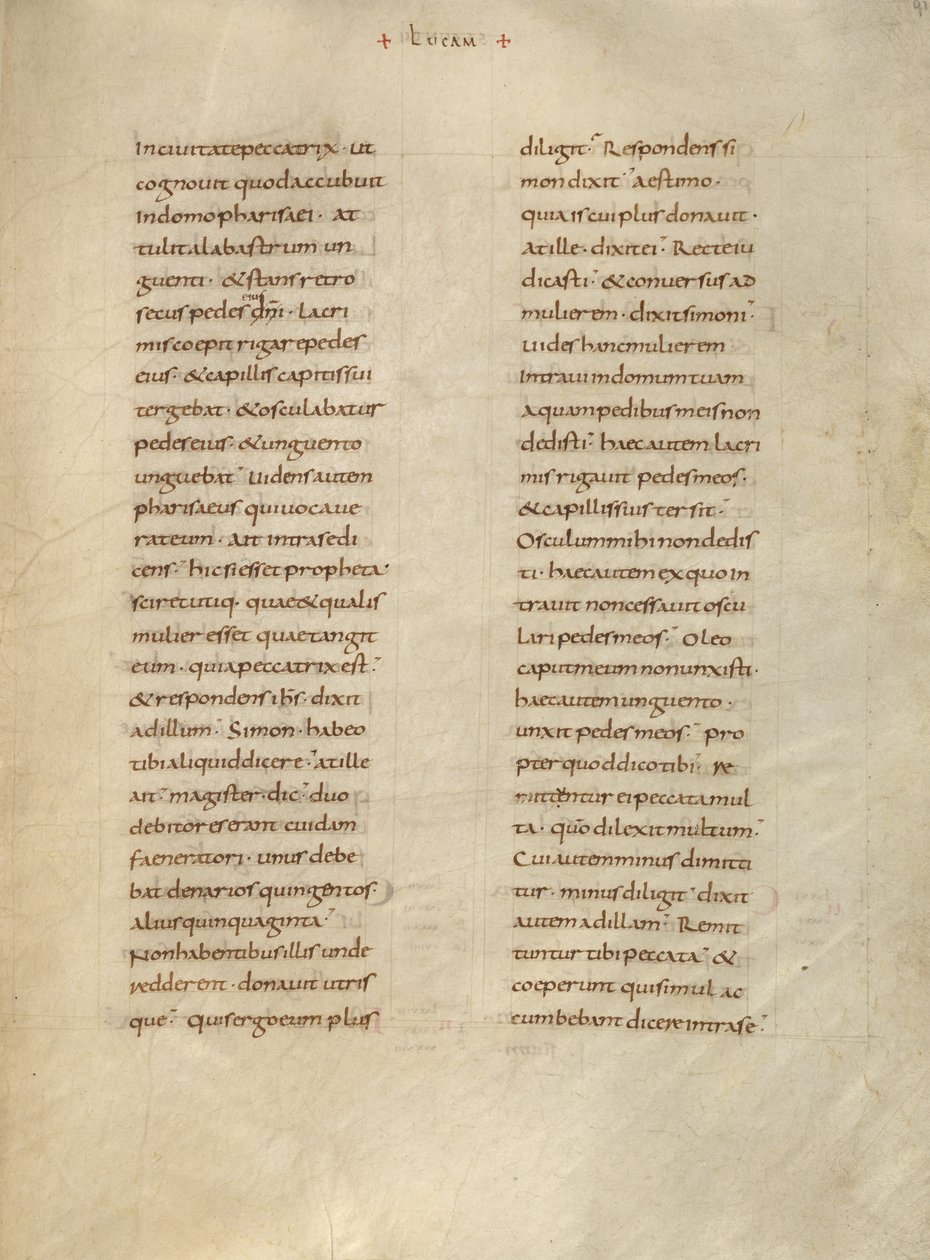 + Lucam +
91
In ciuitate peccatrix · ut
cognouit quod accubuit
In domo pharisaei · at
tulit alabastrum un
guenti · & stans retro
eius
secus pedes dn̄i · lacri
mis coepit rigare pedes
eius · & capillis capitis sui
tergebat · & osculabatur
pedes eius · & unguento
unguebat · Uidens autem
pharisaeus qui uocaue
rat eum · Ait intra se di
cens · hic si esset propheta ·
sciret utiq · quae & qualis
mulier esset quae tangit
eum · quia peccatrix est ·
& respondens ih̅s · dixit
ad illum · Simon · habeo
tibi aliquid dicere · at ille
ait · magister · dic · duo
debitores erant cuidam
faeneratori · unus debe
bat denarios quingentos ·
Alius quinquaginta ·
Non habentibus illis unde
redderent · donauit utris
que · Quis ergo eum plus
diligit · Respondens si
mon dixit · aestimo ·
quia is cui plus donauit ·
At ille · dixit ei · Recte iu
dicasti · & conuersus ad
mulierem · dixit simoni ·
uides hanc mulierem
Intraui in domum tuam
Aquam pedibus meis non
dedisti · haec autem lacri
mis rigauit pedes meos ·
& capillis suis tersit ·
Osculum mihi non dedis
ti · haec autem ex quo in
trauit non cessauit oscu
lari pedes meos · Oleo
caput meum non unxisti ·
haec autem unguento ·
unxit pedes meos · Pro
pter quod dico tibi · re
mittentur ei peccata mul
ta · quō dilexit multum ·
Cui autem minus dimitti
tur · minus diligit · dixit
autem ad illam · Remit
tuntur tibi peccata · &
coeperunt qui simul ac
cumbebant dicere intra se ·